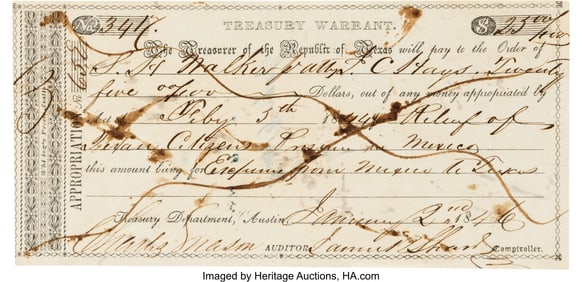 TREASURY WARRANT.
No. 341. $ 25 00/100
The Treasurer of the Republic of Texas will pay to the Order of
S. H. Walker J. C. Hays Twenty
five 00/100 Dollars, out of any money appropriated by
Feby 5th 1844 Relief of
Texan Citizens in Mexico
this amount being for Expenses from Mexico to Texas
Treasury Department, Austin January 2nd 1846
Charles Mason AUDITOR James Shaw Comptroller.
APPROPRIATION
Imaged by Heritage Auctions, HA.com